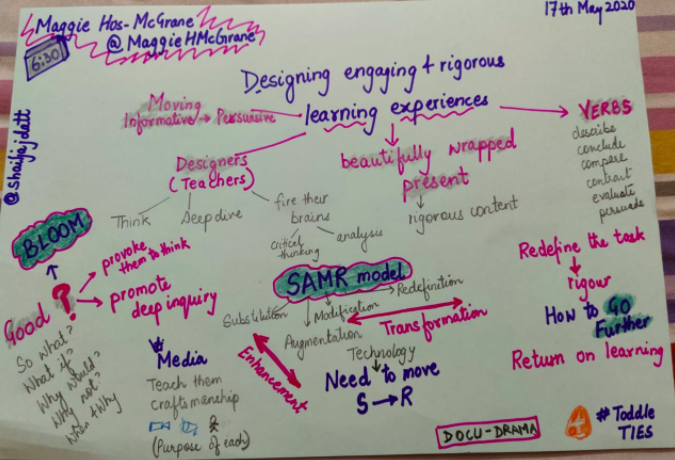 Maggie Hos-McGrane
@MaggieHMcGrane
17th May 2020
6:30
@shaifalijdatt
Designing engaging + rigorous
learning experiences
Moving
Informative → Persuasive
Designers
(Teachers)
Think
Deep dive
fire their
brains
critical
thinking
analysis
beautifully wrapped
present
rigorous content
VERBS
describe
conclude
compare
contract
evaluate
persuade
BLOOM
Good ?
provoke
them to think
promote
deep inquiry
So what?
What if?
Why would?
Why not?
When + Why
SAMR model
Substitution
Augmentation
Modification
Redefinition
Enhancement
Transformation
Technology
Need to move
S → R
Media
Teach them
craftsmanship
(Purpose of each)
Redefine the task
rigour
How to GO
Further
Return on learning
DOCU-DRAMA
#Toddle
TIES